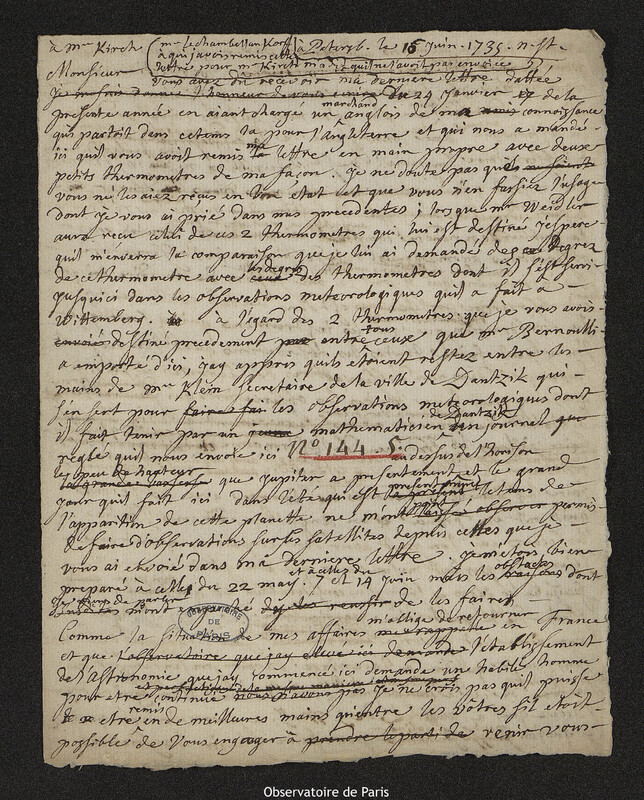 à Mr Kirch (Mr le chambellan Korff à Petersb. le 15 Juin. 1735. n. st.
à qui j'avois remis cette
lettre pour Mr Kirch m'a dit qu'il ne l'avoit pas envoiée)
Monsieur
vous avez dû recevoir ma derniere lettre dattée
du 24 Janvier de la
presente année en aiant chargé un marchand anglois de ma connoissance
qui partoit dans ce tems la pour l'angleterre et qui nous a mandé
ici qu'il vous avoit remis ma lettre en main propre avec deux
petits thermometres de ma façon. je ne doute pas que
vous ne les aiez reçus en bon etat et que vous n'en fassiez l'usage
dont je vous ai prié dans mes precedentes ; lorsque Mr Weidler
aura reçu celui de ces 2 thermometres qui lui est destiné j'espere
qu'il m'enverra la comparaison que je lui ai demandé des degrez
de ce thermometre avec les degrez des thermometres dont il s'est servi
jusqu'ici dans les observations meteorologiques qu'il a fait à
Wittemberg. à l'egard des 2 thermometres que je vous avois
destiné precedement entre tous ceux que Mr Bernoulli
a emporté d'ici, j'ay appris qu'ils étoient restez entre les
mains de Mr Klein secretaire de la ville de Dantzik qui
s'en sert pour les observations meteorologiques dont
il fait tenir par un mathematicien de Dantzik un journal
reglé qu'il nous envoie ici
No 144. 5.
le peu de hauteur au dessus de l'horison
que Jupiter a presentement et le grand
jour qu'il fait ici dans l'eté qui est presentement le tems de
l'apparition de cette planette ne m'ont permis
de faire d'observations sur les satellites depuis celles que je
vous ai envoié dans ma derniere lettre. je m'etois bien
preparé à celle du 22 may et à celles des 7 et 14 Juin mais les obstacles dont
je viens de parler m'ont de les faire
OBSERVATOIRE DE PARIS
Comme la situation de mes affaires m'oblige de retourner en France
et que l'etablissement
de l'astronomie que j'ay commencé ici demande un habile homme
pour etre continué je ne crois pas qu'il puisse
etre remis en de meilleures mains qu'entre les vôtres s'il etoit
possible de vous engager à venir vous
Observatoire de Paris